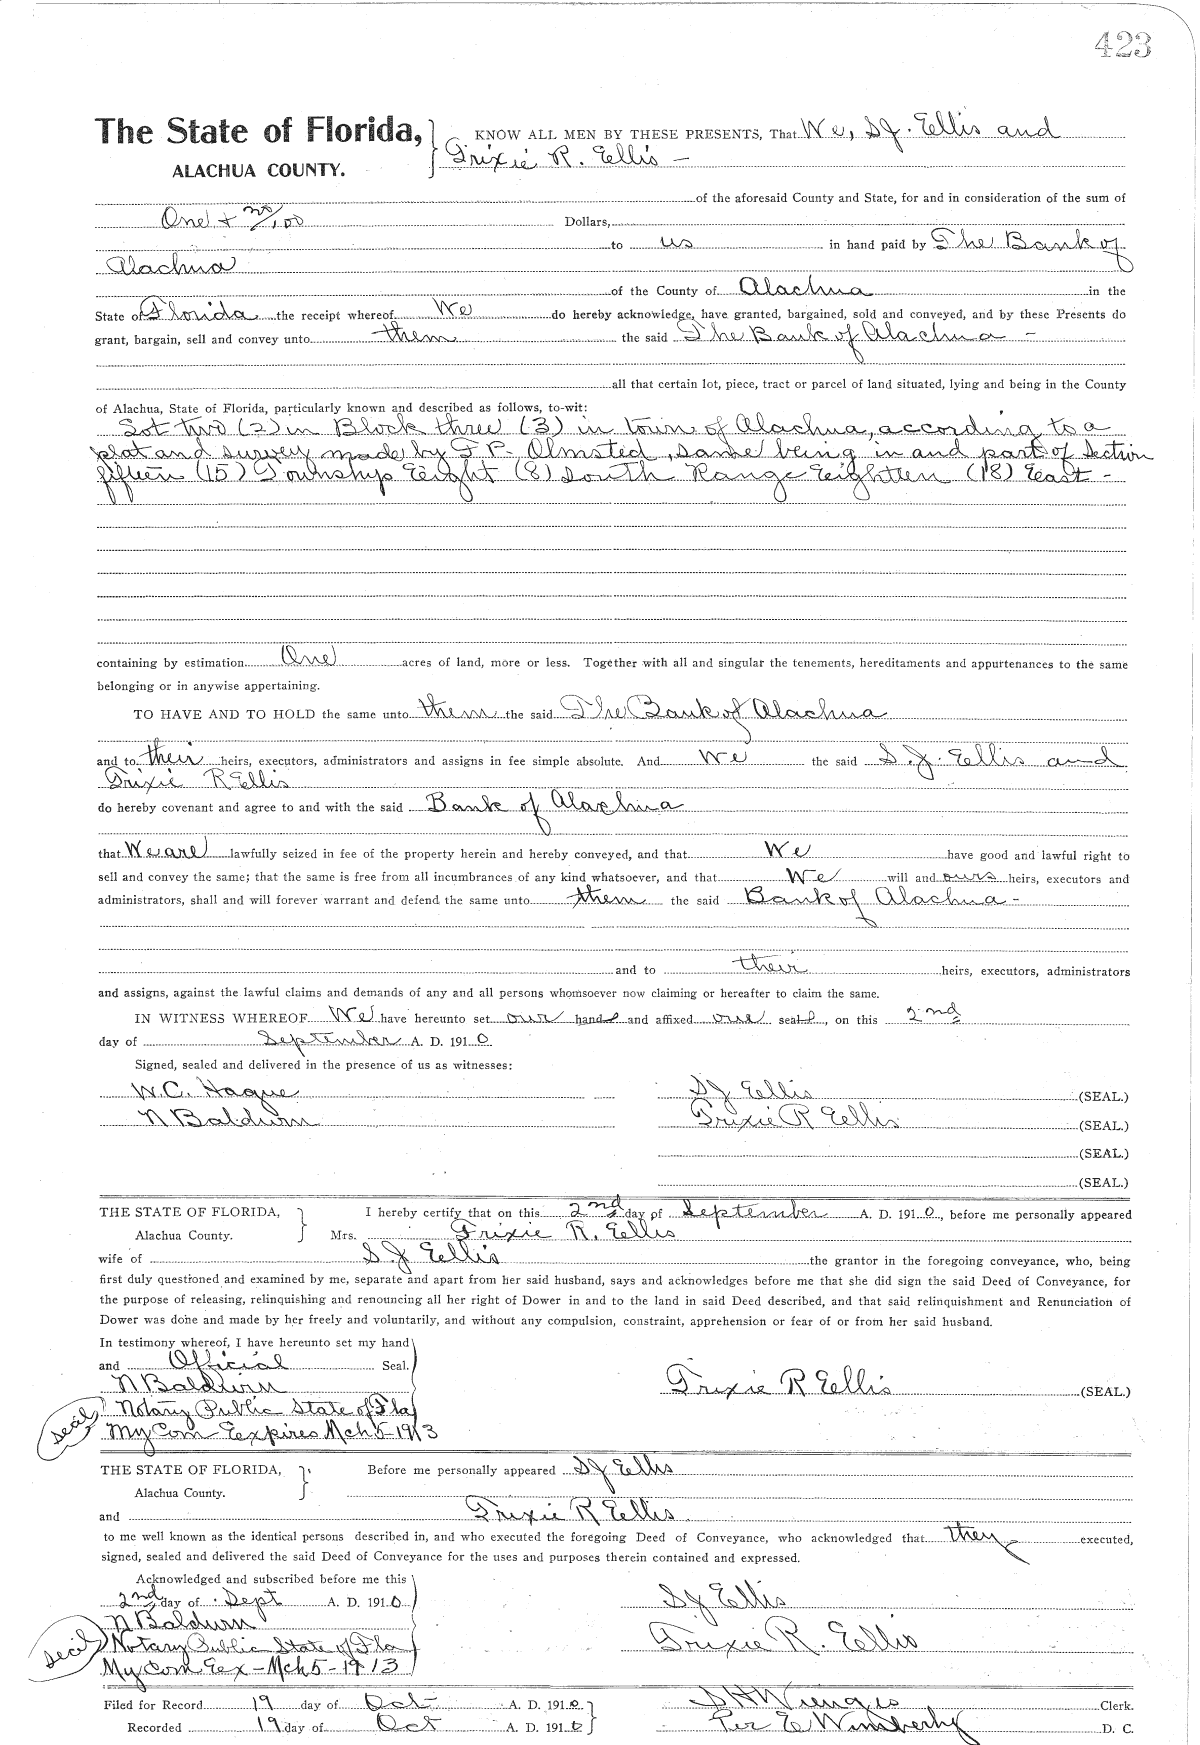 423
The State of Florida, KNOW ALL MEN BY THESE PRESENTS, That We, S.J. Ellis and
ALACHUA COUNTY. Trixie R. Ellis -
of the aforesaid County and State, for and in consideration of the sum of
One + no/100 Dollars,
to us in hand paid by The Bank of
Alachua
of the County of Alachua in the
State of Florida the receipt whereof We do hereby acknowledge, have granted, bargained, sold and conveyed, and by these Presents do
grant, bargain, sell and convey unto them the said The Bank of Alachua -
all that certain lot, piece, tract or parcel of land situated, lying and being in the County
of Alachua, State of Florida, particularly known and described as follows, to-wit:
Lot two (2) in Block three (3) in town of Alachua, according to a
plat and survey made by F.P. Olmsted, same being in and part of Section
fifteen (15) Township Eight (8) South Range Eighteen (18) East -
containing by estimation One acres of land, more or less. Together with all and singular the tenements, hereditaments and appurtenances to the same
belonging or in anywise appertaining.
TO HAVE AND TO HOLD the same unto them the said The Bank of Alachua
and to their heirs, executors, administrators and assigns in fee simple absolute. And We the said S.J. Ellis and
Trixie R Ellis
do hereby covenant and agree to and with the said Bank of Alachua
that We are lawfully seized in fee of the property herein and hereby conveyed, and that We have good and lawful right to
sell and convey the same; that the same is free from all incumbrances of any kind whatsoever, and that We will and ours heirs, executors and
administrators, shall and will forever warrant and defend the same unto them the said Bank of Alachua -
and to their heirs, executors, administrators
and assigns, against the lawful claims and demands of any and all persons whomsoever now claiming or hereafter to claim the same.
IN WITNESS WHEREOF We have hereunto set our hands and affixed our seals, on this 2nd
day of September A. D. 1910.
Signed, sealed and delivered in the presence of us as witnesses:
W.C. Hague SJ Ellis (SEAL.)
N Baldwin Trixie R Ellis (SEAL.)
(SEAL.)
(SEAL.)
THE STATE OF FLORIDA, I hereby certify that on this 2nd day of September A. D. 1910, before me personally appeared
Alachua County. Mrs. Trixie R. Ellis
wife of S.J Ellis the grantor in the foregoing conveyance, who, being
first duly questioned and examined by me, separate and apart from her said husband, says and acknowledges before me that she did sign the said Deed of Conveyance, for
the purpose of releasing, relinquishing and renouncing all her right of Dower in and to the land in said Deed described, and that said relinquishment and Renunciation of
Dower was done and made by her freely and voluntarily, and without any compulsion, constraint, apprehension or fear of or from her said husband.
In testimony whereof, I have hereunto set my hand
and Official Seal.
N Baldwin Trixie R Ellis (SEAL.)
seal Notary Public State of Fla
My Com Eexpires Mch 5-1913
THE STATE OF FLORIDA, Before me personally appeared SJ Ellis
Alachua County.
and Trixie R Ellis.
to me well known as the identical persons described in, and who executed the foregoing Deed of Conveyance, who acknowledged that they executed,
signed, sealed and delivered the said Deed of Conveyance for the uses and purposes therein contained and expressed.
Acknowledged and subscribed before me this
2nd day of Sept A. D. 1910 SJ Ellis
N Baldwin
seal Notary Public State of Fla Trixie R. Ellis
My Com Eex - Mch 5 - 1913
Filed for Record 19 day of Oct A. D. 1910 S H Wienges Clerk.
Recorded 19 day of Oct A. D. 1910 Per E Wimberly D. C.